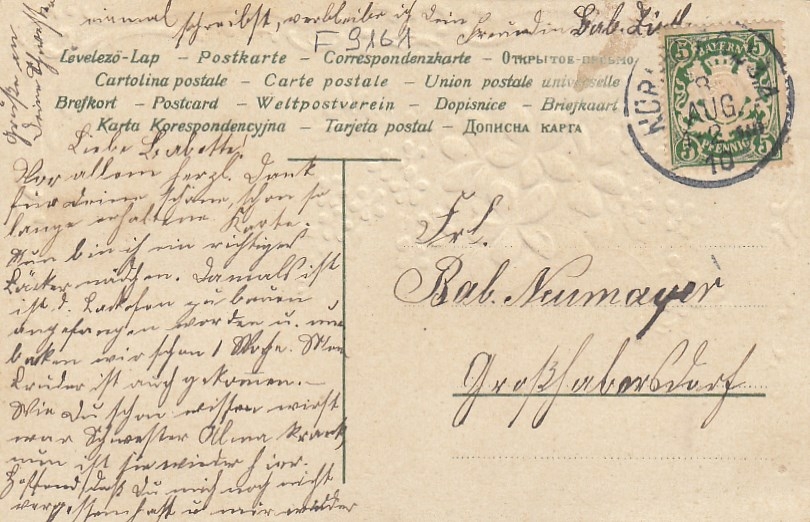 einmal schreibst, verbleibe ich Dein Freundin Bab.
Grüße an Deine Schwester
F 9161
Levelező-Lap – Postkarte – Correspondenzkarte – Открытое-письмо
Cartolina postale – Carte postale – Union postale universelle
Brefkort – Postcard – Weltpostverein – Dopisnice – Briefkaart
Karta Korespondencyjna – Tarjeta postal – Дописна карта
BAYERN
5 5
PFENNIG
5 5
AUG.
10
Liebe Babette!
Vor allem herzl. Dank
für Deine schöne, schon so
lange erhaltene Karte.
Nun bin ich ein richtiges
Bäckermädchen. Damals ist
ist d. Backofen zu bauen
angefangen worden u. nun
backen wir schon 1 Woche. Mein
Bruder ist auch gekommen.–
Wie Du schon wissen wirst
war Schwester Alma krank,
nun ist sie wieder hier.
Hoffend, daß Du mich noch nicht
vergessen hast u mir wieder
Frl.
Bab. Neumayer
Großhabersdorf